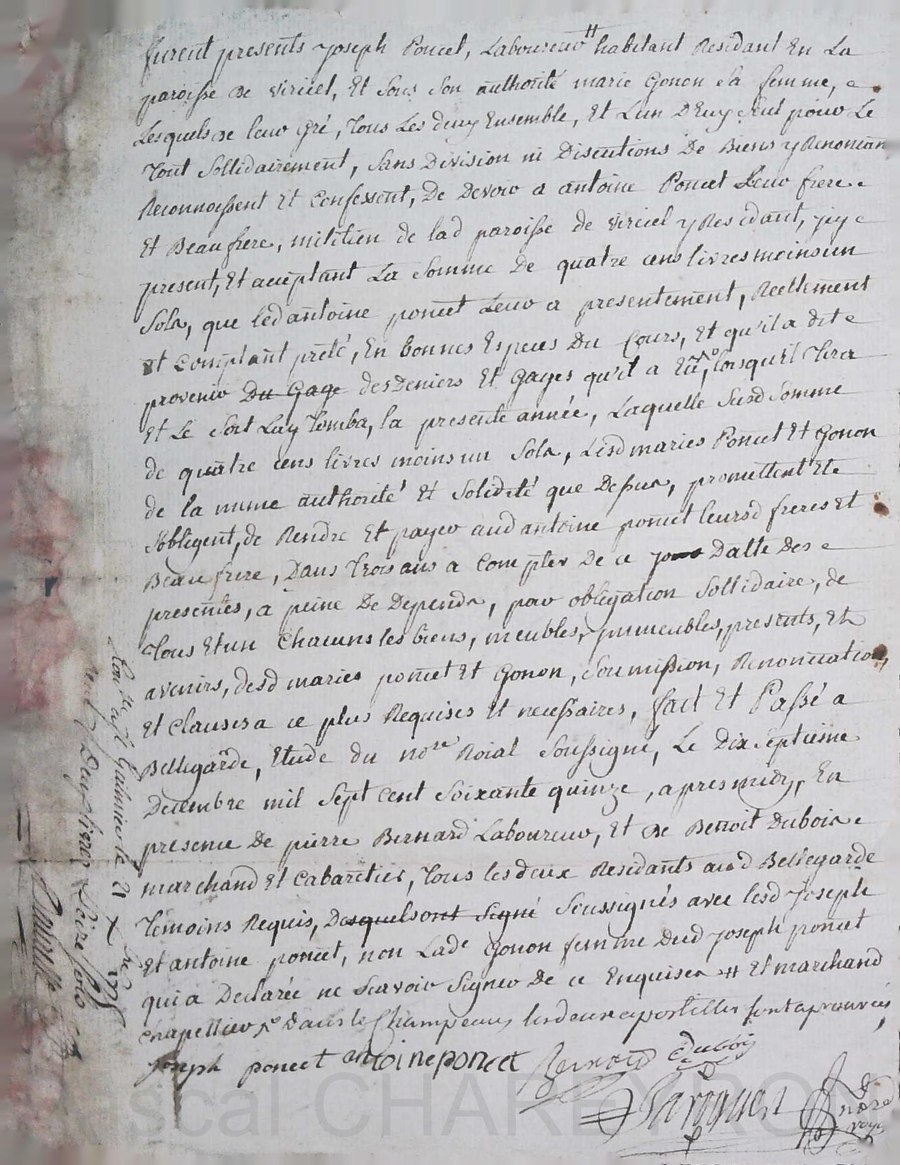 furent presents Joseph Poncet, Laboureur # habitant Residant En La
paroisse de Viricel, Et Sous Son authorité marie Gonon sa femme,
Lesquels de leur Gré, Tous Les deux Ensemble, Et L'un D'Eux Seul pour Le
Tout Sollidairement, Sans Division ni Discutions De Biens y Renoncan
Reconnoissent Et Confessent, De Devoir a antoine Poncet Leur frere
Et Beaufrere, militien de lad paroisse de Viricel y Residant, jcy
present, Et acceptant La Somme De quatre cens livres moins un
Sols, que led antoine poncet Leur a presentement, Reellement
Et Comptant prété, En bonnes Especes Du Cours, Et qu'il a dit
provenir Du Gage des Deniers Et Gages qu'il a Eü, lorsqu'il Tira
Et Le Sort Luy Tomba, la presente année, Laquelle Susd Somme
de quattre cens livres moins un Sols, Lesd maries Poncet Et Gonon
de la même authorité Et Solidité que Dessus, promettent Et
S'obligent, de Rendre Et payer aud antoine poncet leursd freres Et
Beaufrere, Dans Trois ans a Compter De ce jour Datte des
presentes, a peine De Depends, par obligation Sollidaire, de
Tous Et un Chacuns les biens, meubles, jmmeubles, presents, Et
avenirs, desd maries poncet Et Gonon, Soumission, Renonciation,
Et Clauses a ce plus Requises Et necessaires, fait Et Passé a
Bellegarde, Etude du nore Roial Soussigné, Le Dix Septieme
Decembre mil Sept Cent Soixante quinze, apres midy, En
presence de pierre Bernard Laboureur, Et De Benoit Dubois
marchand Et Cabaretier, Tous les deux Residants aud Bellegarde
Temoins Requis, Desquels ont Signé Soussignés avec lesd Joseph
Et antoine poncet, non Lade Gonon femme dud Joseph poncet
qui a Declarée ne Scavoir Signer De ce Enquise # Et marchand
chapellier Dans le Champeaux, les deux apostilles sont aprouvées
Joseph poncet antoine poncet Bernard Dubois
nore
Con̄le a St Galmier le 21 Xbre 1775